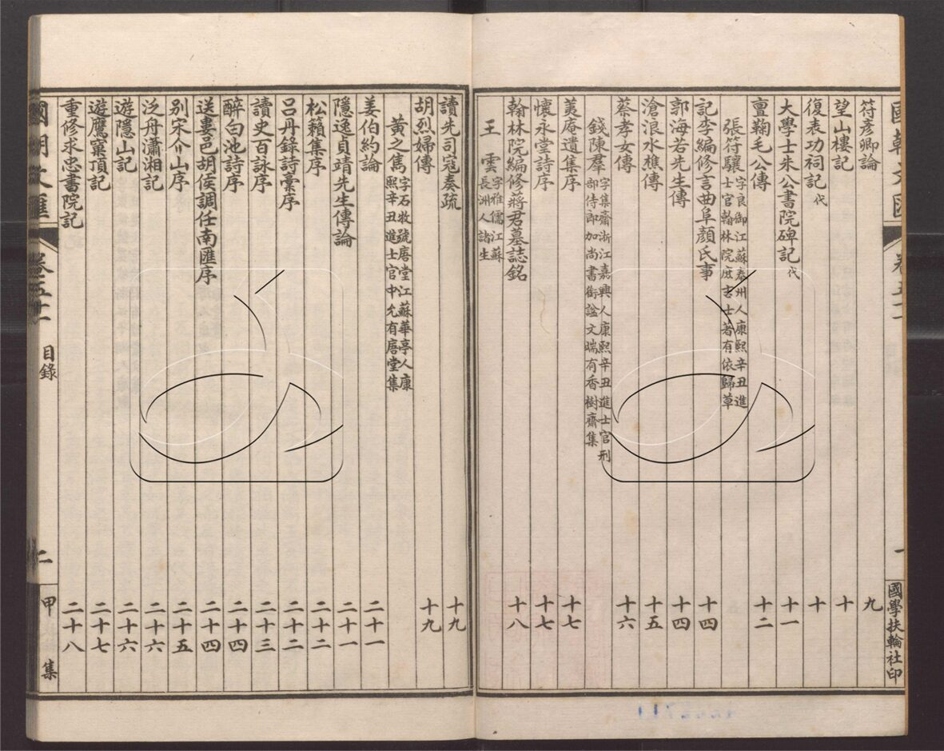 國朝文匯 卷五十一 一 國學扶輪社印
符彥卿論 九
望山樓記 十
復表功祠記代 十
大學士朱公書院碑記代 十一
亶鞠毛公傳 十二
張符驤字良御江蘇泰州人康熙辛丑進士官翰林院庶吉士著有依歸草
記李編修言曲阜顏氏事 十四
郭海若先生傳 十四
滄浪水樵傳 十五
蔡孝女傳 十六
錢陳羣字集齋浙江嘉興人康熙辛丑進士官刑部侍郎加尚書銜諡文端有香樹齋集
莢庵遺集序 十七
懷永堂詩序 十七
翰林院編修蔣君墓誌銘 十八
王 雲字雅儒江蘇長洲人諸生
讀先司寇奏疏 十九
胡烈婦傳 十九
黃之雋字石牧號𢈪堂江蘇華亭人康熙辛丑進士官中允有𢈪堂集
姜伯約論 二十一
隱逸貞靖先生傳論 二十一
松籟集序 二十二
呂丹錄詩稾序 二十二
讀史百詠序 二十三
醉白池詩序 二十四
送婁邑胡侯調任南匯序 二十四
別宋介山序 二十五
泛舟瀟湘記 二十六
遊隱山記 二十六
遊鷹窠頂記 二十七
重修求忠書院記 二十八
國朝文匯 卷五十一 目錄 二 甲集